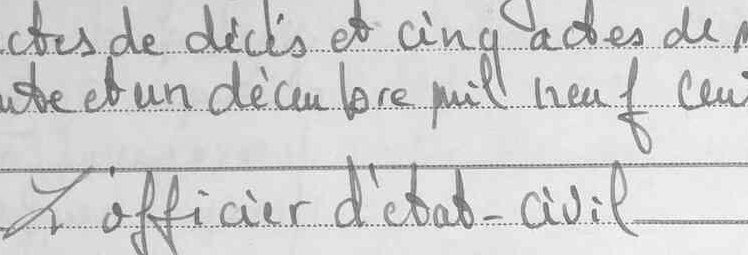 ctes de décès et cinq actes de m
nte et un décembre mil neuf cent
L'officier d'état-civil